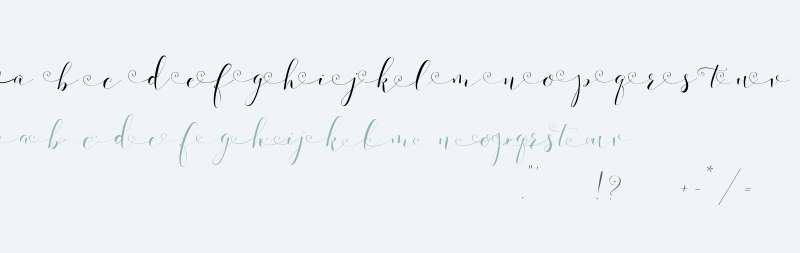 a b c d e f g h i j k l m n o p q r s t u v
a b c d e f g h i j k l m n o p q r s t u v
. " ' ! ? + - * / =